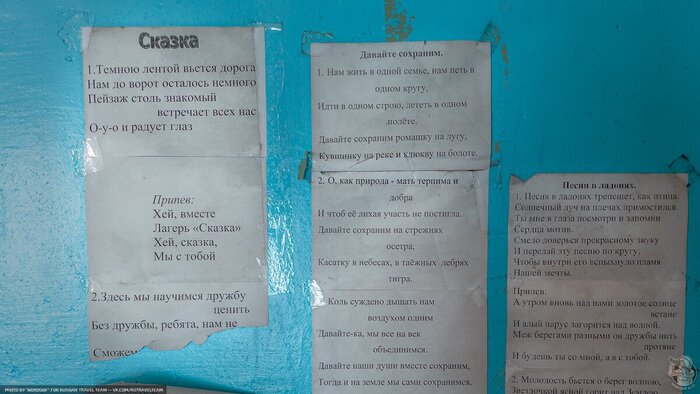 Сказка
1.Темною лентой вьется дорога
Нам до ворот осталось немного
Пейзаж столь знакомый
встречает всех нас
О-у-о и радует глаз
Припев:
Хей, вместе
Лагерь «Сказка»
Хей, сказка,
Мы с тобой
2.Здесь мы научимся дружбу
ценить
Без дружбы, ребята, нам не
Сможем
Давайте сохраним.
1. Нам жить в одной семье, нам петь в
одном кругу,
Идти в одном строю, лететь в одном
полёте.
Давайте сохраним ромашку на лугу,
Кувшинку на реке и клюкву на болоте.
2. О, как природа - мать терпима и
добра
И чтоб её лихая участь не постигла.
Давайте сохраним на стрежнях
осетра,
Касатку в небесах, в таёжных дебрях
тигра.
Коль суждено дышать нам
воздухом одним
Давайте-ка, мы все на век
объединимся.
Давайте наши души вместе сохраним,
Тогда и на земле мы сами сохранимся.
Песня в ладонях.
1. Песня в ладонях трепещет, как птица.
Солнечный луч на плечах примостился.
Ты мне в глаза посмотри и запомни
Сердца мотив.
Смело доверься прекрасному звуку
И передай эту песню по кругу,
Чтобы внутри его вспыхнуло пламя
Нашей мечты.
Припев:
А утром вновь над нами золотое солнце
встане
И алый парус загорится над волной.
Меж берегами разными он дружбы нить
протяне
И будешь ты со мной, а я с тобой.
2. Молодость бьется о берег волною,
Звездочкой ясной горит над Землею
PHOTO BY "NORDSKIF" FOR RUSSIAN TRAVEL TEAM — VK.COM/RUTRAVELTEAM